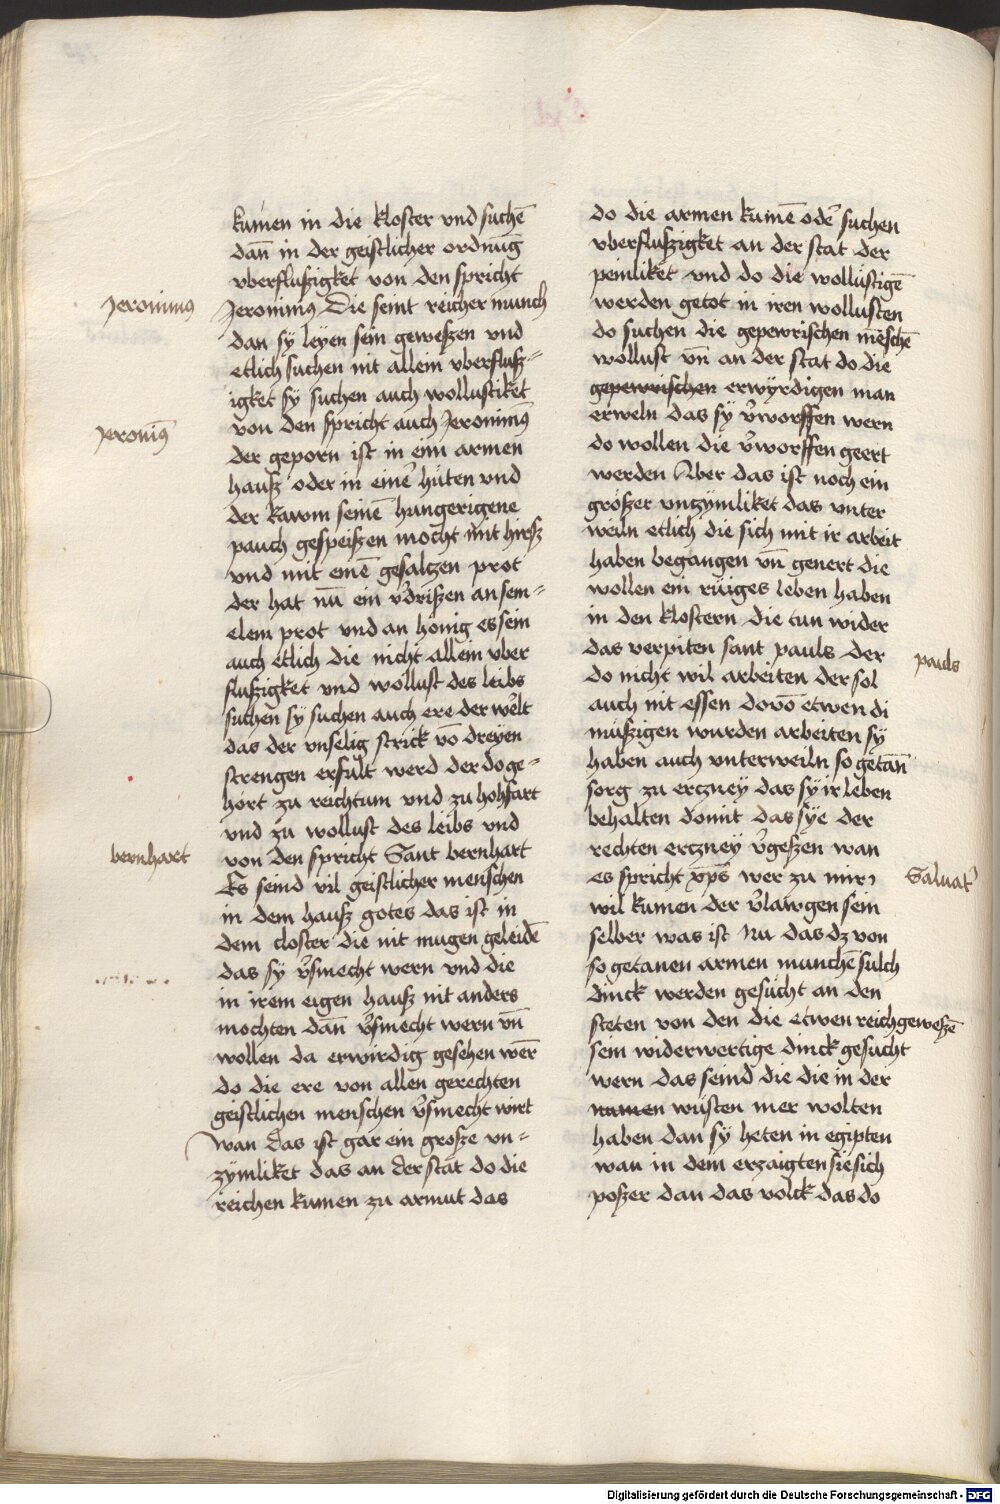 kumen in die kloster vnd suchē
dañ in der geistlicher ordnūg
vberflußigket von den spricht
Jeronimus
Jeronimus Die seint reicher munch
dan sy leyen sein geweßen vnd
etlich suchen nit allein vberfluß=
igket sÿ suchen auch wollustiket
Jeronim9
von den spricht auch Jeronim9
der geporn ist in eim armen
hauß oder in einer hüten vnd
der kawm seinē hungerigene
pauch gespeißen mocht mit hirsz
vnd mit einē gesaltzen prot
der hat nū ein v̾drißen an sem=
elem prot vnd an hönig es sein
auch etlich die nicht allein vber
flußigket vnd wollust des leibs
suchen sÿ suchen auch ere der welt
das der vnselig strick vō dreyen
strengen erfult werd der do ge=
hört zu reichtum vnd zu hohfart
vnd zu wollust des leibs vnd
bernhart
von den spricht Sant bernhart
Es seind vil geistlicher menschen
in dem hauß gotes das ist in
dem closter die nit mugen geleidē
das sÿ v̾smecht wern vnd die
in irem eigen hauß nit anders
mochten dañ v̾smecht wern vn̄
wollen da erwirdig gesehen wer̄
do die ere von allen gerechten
geistlichen menschen v̾smecht wirt
wan das ist gar ein große vn=
zymliket das an der stat do die
reichen kumen zu armut das
do die armen kumē oder suchen
vberflußigket an der stat der
peinliket vnd do die wollustigē
werden getot in iren wollusten
do suchen die gepewrischen mēschē
wollust vn̄ an der stat do die
gepewrischen erwyrdigen man
erweln das sÿ v̾worffen wern
do wollen die v̾worffen geert
werden Aber das ist noch ein
größer vnzymliket das vnter
weiln etlich die sich mit ir arbeit
haben begangen vn̄ genert die
wollen ein rüiges leben haben
in den klostern die tun wider
das verpiten sant pauls der
pauls
do nicht wil arbeiten der sol
auch nit essen dovō etwen di
müßigen wurden arbeiten sÿ
haben auch vnterweiln so getañ
sorg zu erczneÿ das sÿ ir leben
behalten domit das sÿe der
rechten erczneÿ v̾geßen wan
es spricht xp̄s wer zu mir
Saluator
wil kumen der v̾lawgen sein
selber was ist nu das dz von
so getanen armen munchē sulch
dinck werden gesucht an den
steten von den die etwen reich geweßē
sein widerwertige dinck gesucht
wern das seind die die in der
namen wüsten mer wolten
haben dan sÿ heten in egipten
wan in dem erzaigten sie sich
poßer dan das volck das do
Digitalisierung gefördert durch die Deutsche Forschungsgemeinschaft - DFG